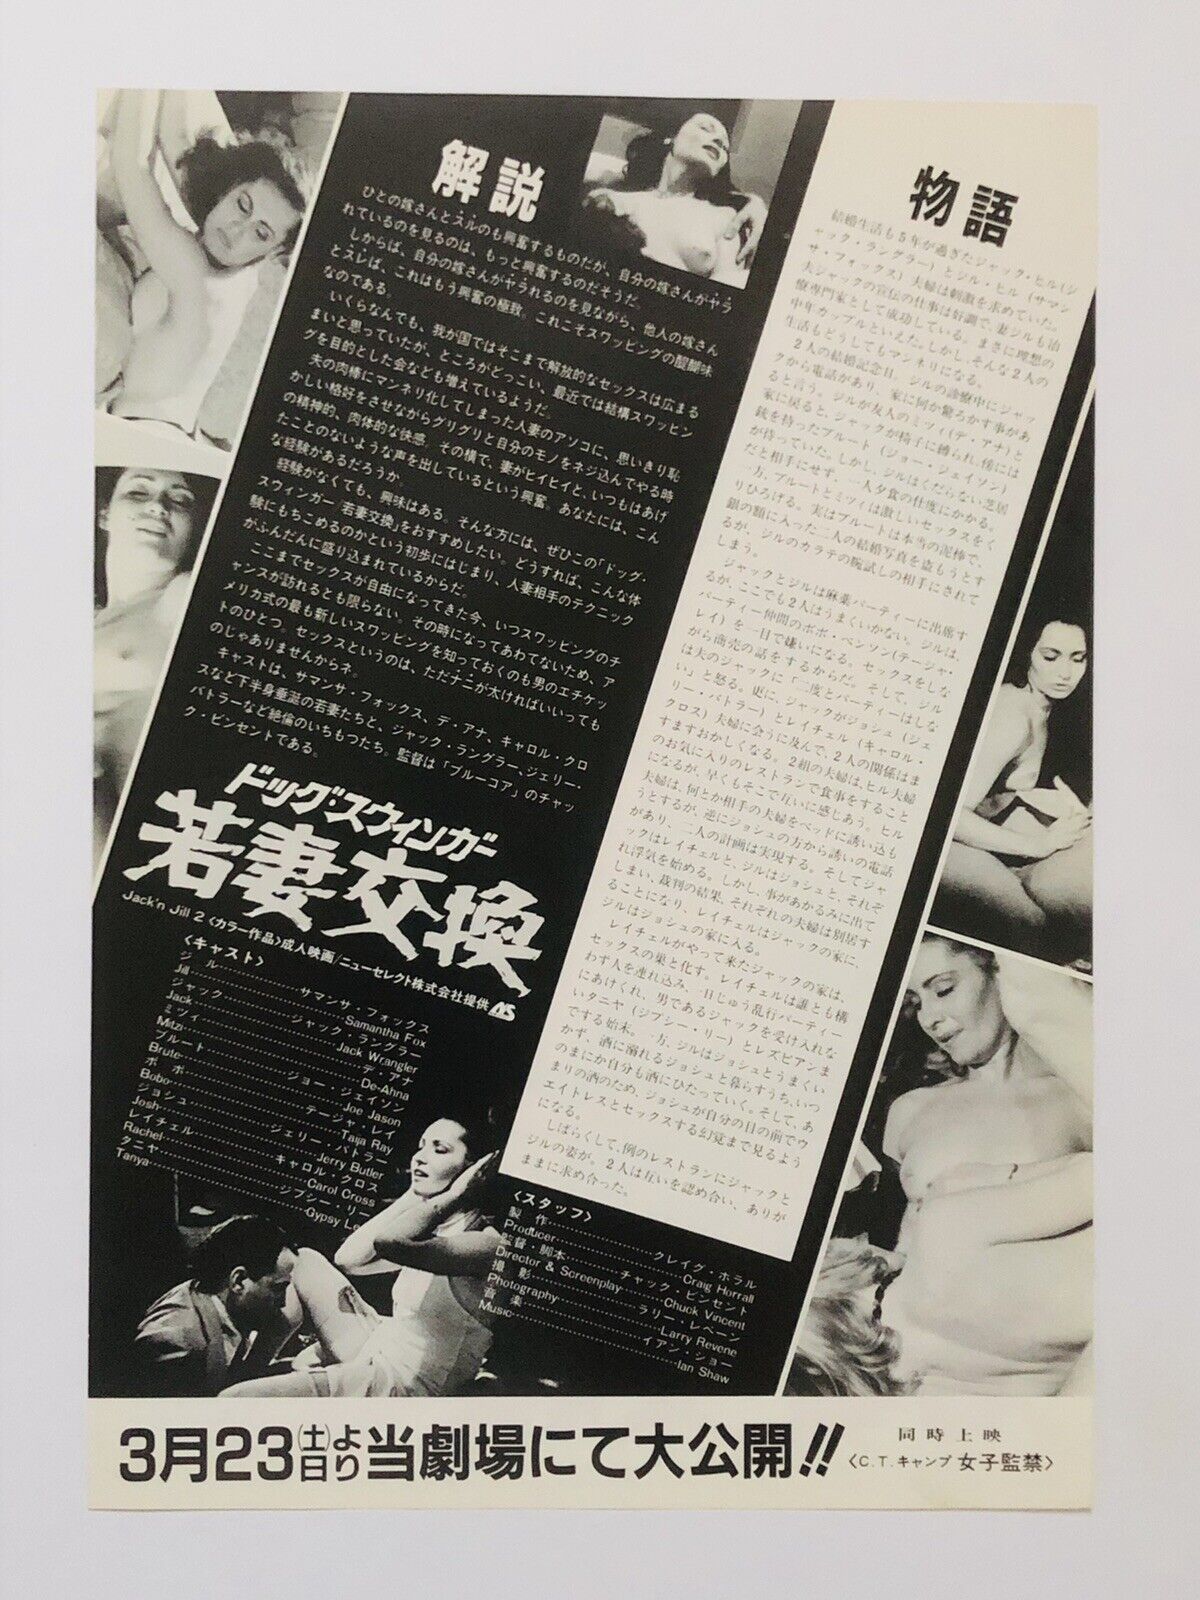 解説
ひとの嫁さんとスルのも興奮するものだが、自分の嫁さんがヤラ
れているのを見るのは、もっと興奮するのだそうだ。
しからば、自分の嫁さんがヤラれるのを見ながら、他人の嫁さん
とスレば、これはもう興奮の極致。これこそスワッピングの醍醐味
なのである。
いくらなんでも、我が国ではそこまで解放的なセックスは広まる
まいと思っていたが、ところがどっこい、最近では結構スワッピン
グを目的とした会なども増えているようだ。
夫の肉棒にマンネリ化してしまった人妻のアソコに、思いきり恥
かしい格好をさせながらグリグリと自分のモノをネジ込んでやる時
の精神的、肉体的な快感。その横で、妻がヒイヒイと、いつもはあげ
たことのないような声を出しているという興奮。あなたには、こん
な経験があるだろうか。
経験がなくても、興味はある。そんな方には、ぜひこの「ドッグ・
スウィンガー 若妻交換」をおすすめしたい。どうすれば、こんな体
験にもちこめるのかという初歩にはじまり、人妻相手のテクニック
がふんだんに盛り込まれているからだ。
ここまでセックスが自由になってきた今、いつスワッピングのチ
ャンスが訪れるとも限らない。その時になってあわてないため、ア
メリカ式の最も新しいスワッピングを知っておくのも男のエチケッ
トのひとつ。セックスというのは、ただナニが太ければいいっても
のじゃありませんからネ。
キャストは、サマンサ・フォックス、デ・アナ、キャロル・クロ
スなど下半身垂涎の若妻たちと、ジャック・ラングラー、ジェリー・
バトラーなど絶倫のいちもつたち。監督は「ブルーコア」のチャッ
ク・ビンセントである。
ドッグ・スウィンガー
若妻交換
Jack'n Jill 2〈カラー作品〉成人映画/ニューセレクト株式会社提供 NS
〈キャスト〉
ジル……サマンサ・フォックス
Jill……Samantha Fox
ジャック……ジャック・ラングラー
Jack……Jack Wrangler
ミツィ……デ・アナ
Mitzi……De-Ahna
ブルート……ジョー・ジェイソン
Brute……Joe Jason
ボボ……テージャ・レイ
Bobo……Taija Ray
ジョシュ……ジェリー・バトラー
Josh……Jerry Butler
レイチェル……キャロル・クロス
Rachel……Carol Cross
タニヤ……ジプシー・リー
Tanya……Gypsy Lee
物語
結婚生活も5年が過ぎたジャック・ヒル(ジ
ャック・ラングラー)とジル・ヒル(サマン
サ・フォックス)夫婦は刺激を求めていた。
夫ジャックの宣伝の仕事は好調で、妻ジルも治
療専門家として成功している。まさに理想の
中年カップルといえた。しかし、そんな2人の
生活もどうしてもマンネリになる。
2人の結婚記念日。ジルの診療中にジャッ
クから電話があり、家に何か驚ろかす事があ
ると言う。ジルが友人のミツィ(デ・アナ)と
家に戻ると、ジャックが椅子に縛られ、傍には
銃を持ったブルート(ジョー・ジェイソン)
が待っていた。しかし、ジルはくだらない芝居
だと相手にせず、一人夕食の仕度にかかる。
一方、ブルートとミツィは激しいセックスをく
りひろげる。実はブルートは本当の泥棒で、
銀の額に入った二人の結婚写真を盗もうとす
るが、ジルのカラテの腕試しの相手にされて
しまう。
ジャックとジルは麻薬パーティーに出席す
るが、ここでも2人はうまくいかない。ジルは、
パーティー仲間のボボ・ベンソン(テージャ・
レイ)を一目で嫌いになる。セックスをしな
がら商売の話をするからだ。そして、ジル
は夫のジャックに「二度とパーティーはしな
い」と怒る。更に、ジャックがジョシュ(ジェ
リー・バトラー)とレイチェル(キャロル・
クロス)夫婦に会うに及んで、2人の関係はま
すますおかしくなる。2組の夫婦は、ヒル夫婦
のお気に入りのレストランで食事をすること
になるが、早くもそこで互いに感じあう。ヒル
夫婦は、何とか相手の夫婦をベッドに誘い込も
うとするが、逆にジョシュの方から誘いの電話
があり、二人の計画は実現する。そしてジャ
ックはレイチェルと、ジルはジョシュと、それぞ
れ浮気を始める。しかし、事があかるみに出て
しまい、裁判の結果、それぞれの夫婦は別居す
ることになり、レイチェルはジャックの家に、
ジルはジョシュの家に入る。
レイチェルがやって来たジャックの家は、
セックスの巣と化す。レイチェルは誰とも構
わず人を連れ込み、一日じゅう乱行パーティー
にあけくれ、男であるジャックを受け入れな
いタニヤ(ジプシー・リー)とレズビアンま
でする始末。一方、ジルはジョシュとうまくい
かず、酒に溺れるジョシュと暮らすうち、いつ
のまにか自分も酒にひたっていく。そして、あ
まりの酒のため、ジョシュが自分の目の前でウ
エイトレスとセックスする幻覚まで見るよう
になる。
しばらくして、例のレストランにジャックと
ジルの姿が。2人は互いを認め合い、ありが
ままに求め合った。
〈スタッフ〉
製作……クレイグ・ホラル
Producer……Craig Horrall
監督・脚本……チャック・ビンセント
Director & Screenplay……Chuck Vincent
撮影……ラリー・レベーン
Photography……Larry Revene
音楽……イアン・ショー
Music……Ian Shaw
3月23(土)日より当劇場にて大公開!!
同時上映
〈C.T.キャンプ 女子監禁〉